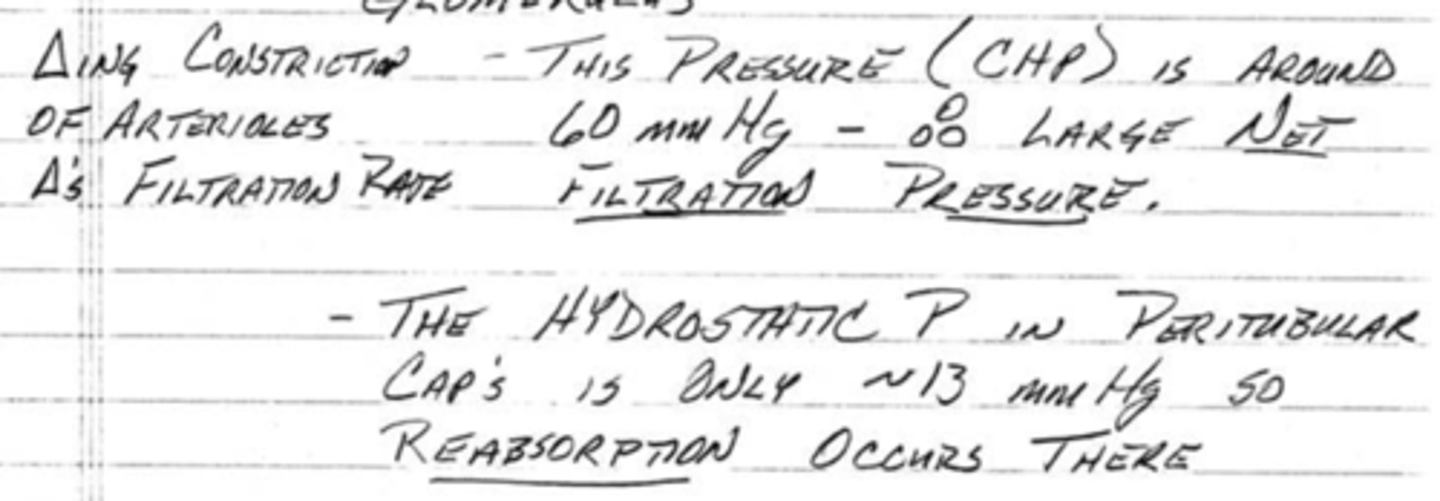 GLOMERULUS
Δing CONSTRICTION - THIS PRESSURE (CHP) IS AROUND
OF ARTERIOLES 60 mm Hg - ∴ LARGE NET
Δ's FILTRATION RATE FILTRATION PRESSURE.
- THE HYDROSTATIC P IN PERITUBULAR
CAP'S IS ONLY ~13 mm Hg SO
REABSORPTION OCCURS THERE